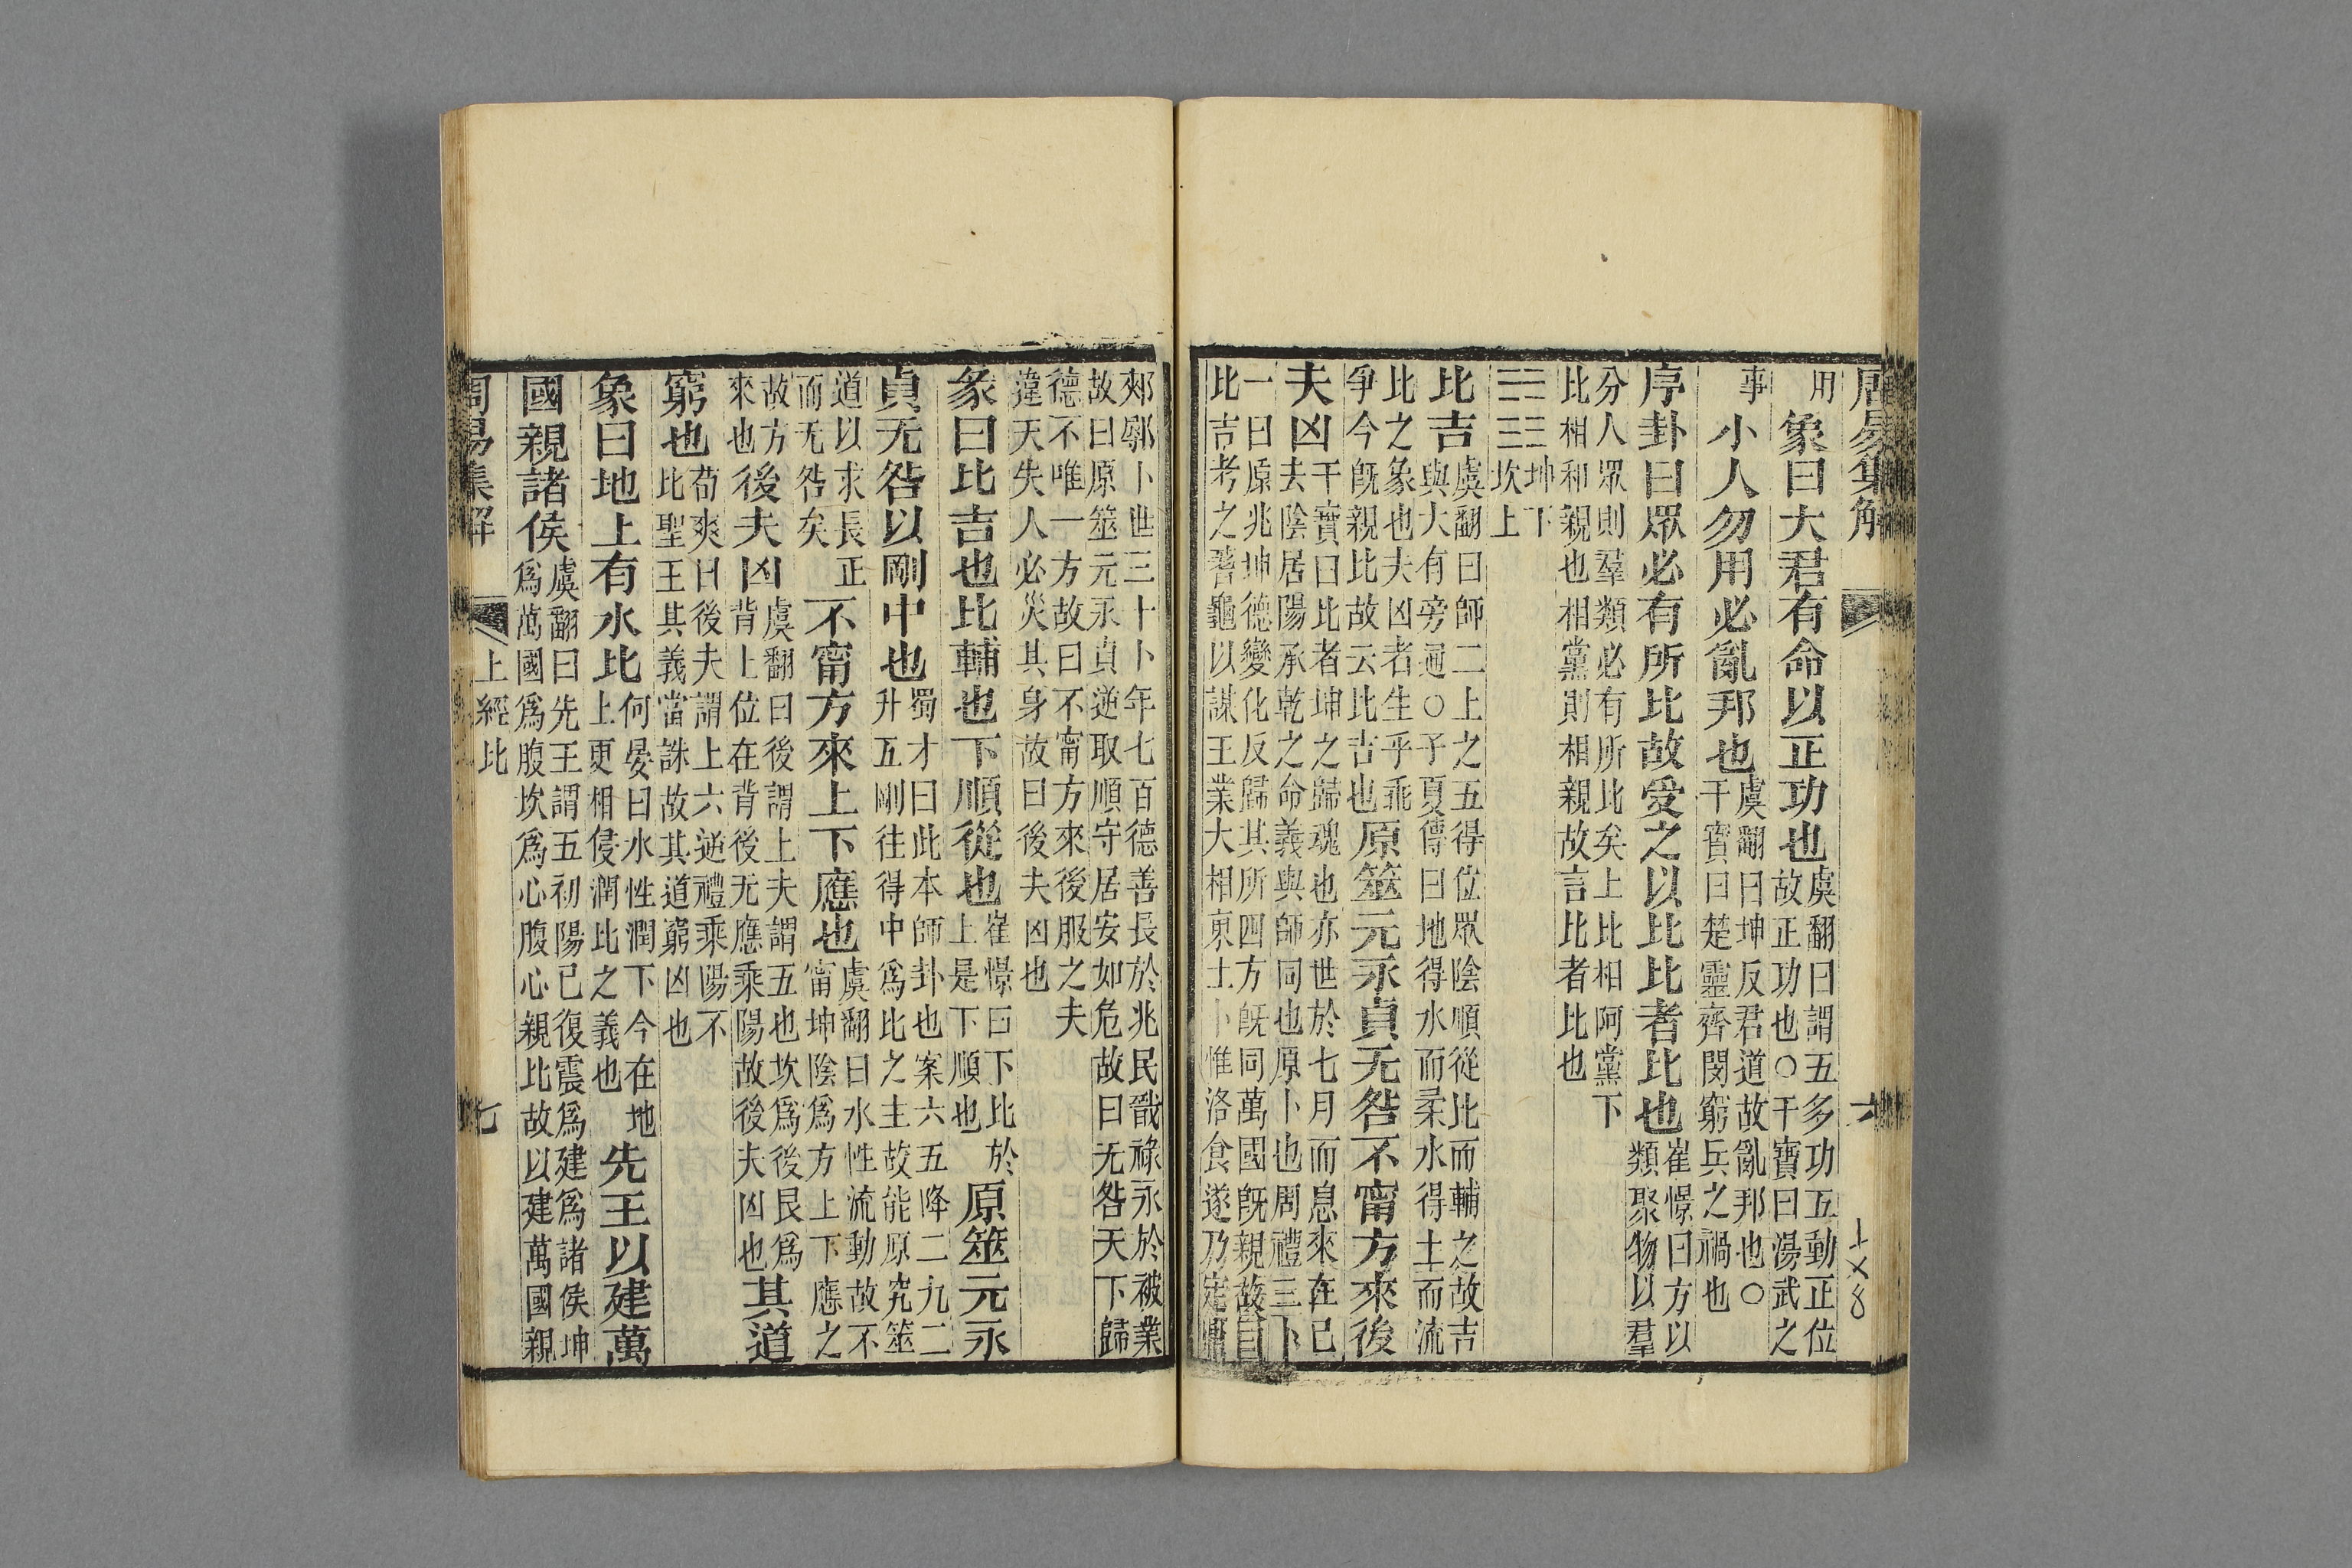 周易集解 六
用 象曰大君有命以正功也虞翻曰謂五多功五動正位故正功也○干寶曰湯武之
事 小人勿用必亂邦也虞翻曰坤反君道故亂邦也○干寶曰楚靈齊閔窮兵之禍也
序卦曰眾必有所比故受之以比比者比也崔憬曰方以類聚物以羣
分人眾則羣類必有所比矣上比相阿黨下比相和親也相黨則相親故言比者比也
坤下坎上
比吉虞翻曰師二上之五得位眾陰順從比而輔之故吉與大有旁通○子夏傳曰地得水而柔水得土而流
比之象也夫凶者生乎乖爭今既親比故云比吉也原筮元永貞无咎不甯方來後
夫凶干寶曰比者坤之歸魂也亦世於七月而息來在已去陰居陽承乾之命義與師同也原卜也周禮三卜
一曰原兆坤德變化反歸其所四方既同萬國既親故曰比吉考之蓍龜以謀王業大相東土卜惟洛食遂乃定鼎
郟鄏卜世三十卜年七百德善長於兆民戩祿永於被業故曰原筮元永貞逆取順守居安如危故曰无咎天下歸
德不唯一方故曰不甯方來後服之夫違天失人必災其身故曰後夫凶也
彖曰比吉也比輔也下順從也崔憬曰下比於上是下順也原筮元永
貞无咎以剛中也蜀才曰此本師卦也案六五降二九二升五剛往得中爲比之主故能原究筮
道以求長正而无咎矣不甯方來上下應也虞翻曰水性流動故不甯坤陰爲方上下應之
故方來也後夫凶虞翻曰後謂上夫謂五也坎爲後艮爲背上位在背後无應乘陽故後夫凶也其道
窮也荀爽曰後夫謂上六逆禮乘陽不比聖王其義當誅故其道窮凶也
象曰地上有水比何晏曰水性潤下今在地上更相侵潤比之義也先王以建萬
國親諸侯虞翻曰先王謂五初陽已復震爲建爲諸侯坤爲萬國爲腹坎爲心腹心親比故以建萬國親
周易集解 上經 比 七